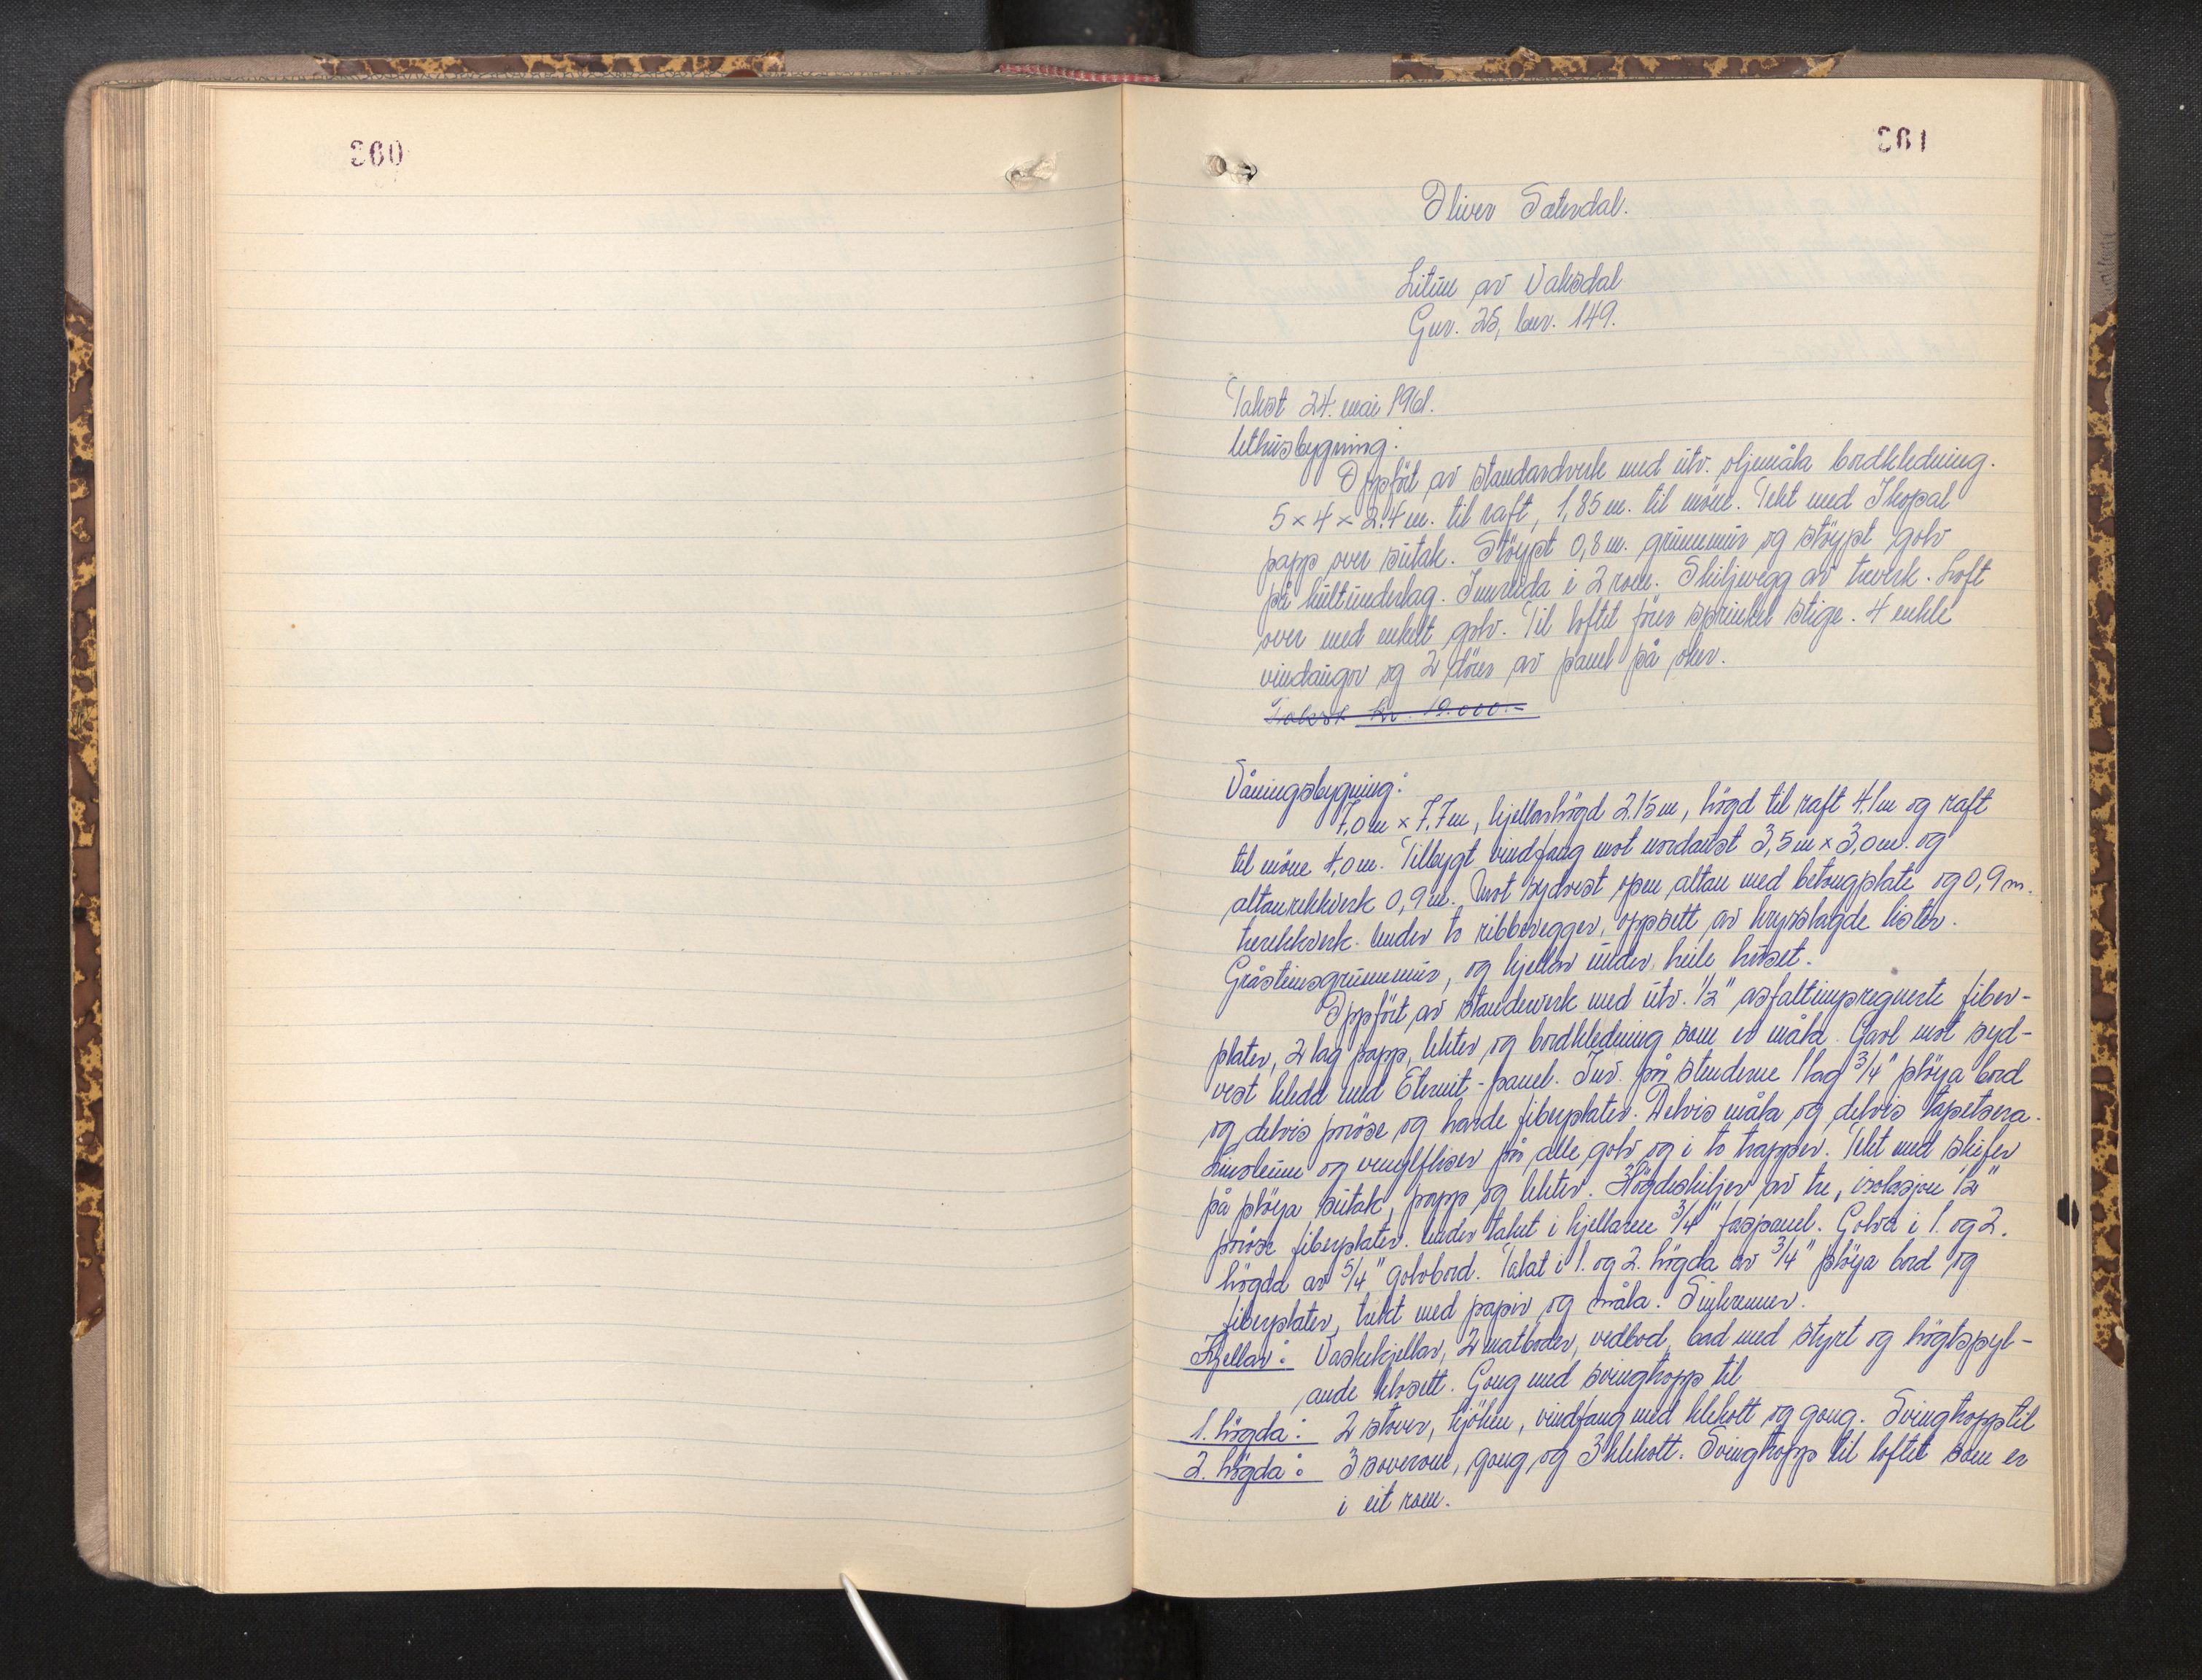 360
361
Oliver Sæterdal.
Litun av Vaksdal
Gnr. 25, bnr. 149.
Takst 24. mai 1961.
Uthusbygning:
Oppført av standardverk med utv. oljemåla bordkledning.
5 × 4 × 2.4 m. til raft, 1,85 m. til möne. Tekt med Ikopal
papp over sutak. Stöypt 0,8 m. grunnmur og stöypt golv
på kultunderlag. Innreida i 2 rom. Skiljevegg av treverk. Loft
over med enkelt golv. Til loftet förer sprinkel stige. 4 enkle
vindaugor og 2 dörer av panel på oker.
Takst kr. 19.000.-
Våningsbygning:
7,0 m × 7,7 m, kjellarhögd 2.15 m, högd til raft 4.1 m og raft
til möne 4,0 m. Tilbygt vindfang mot nordaust 3,5 m × 3,0 m. og
altanrekkverk 0,9 m. Mot sydvest open altan med betongplate og 0,9 m.
trerekkverk. Under to ribbevegger, oppsett av krysslagde lister.
Gråsteinsgrunnmur, og kjellar under heile huset.
Oppfört av standerverk med utv. 1/2" asfaltimpregnerte fiber-
plater, 2 lag papp, lekter og bordkledning som er måla. Gavl mot syd-
vest kledd med Eternit-panel. Inv. på stenderne 1 lag 3/4" plöya bord
og delvis poröse og harde fiberplater. Delvis måla og delvis tapetsera.
Linoleum og venylfliser på alle golv og i to trapper. Tekt med skifer
på plöya sutak, papp og lekter. Högdeskiljer av tre, isolasjon 1/2"
poröse fiberplater. Under taket i kjellaren 3/4" faspanel. Golva i 1. og 2.
högda av 5/4" golvbord. Taket i 1. og 2. högda av 3/4" plöya bord og
fiberplater, trekt med papir og måla. Sinkrenner.
Kjellar: Vaskekjellar, 2 matboder, vedbod, bad med styrt og högtspyl-
ande klosett. Gong med svingtropp til
1. högda: 2 stover, kjöken, vindfang med klekott og gong. Svingtropp til
2. högda: 3 soverom, gong og 3 klekott. Svingtropp til loftet som er
i eit rom.